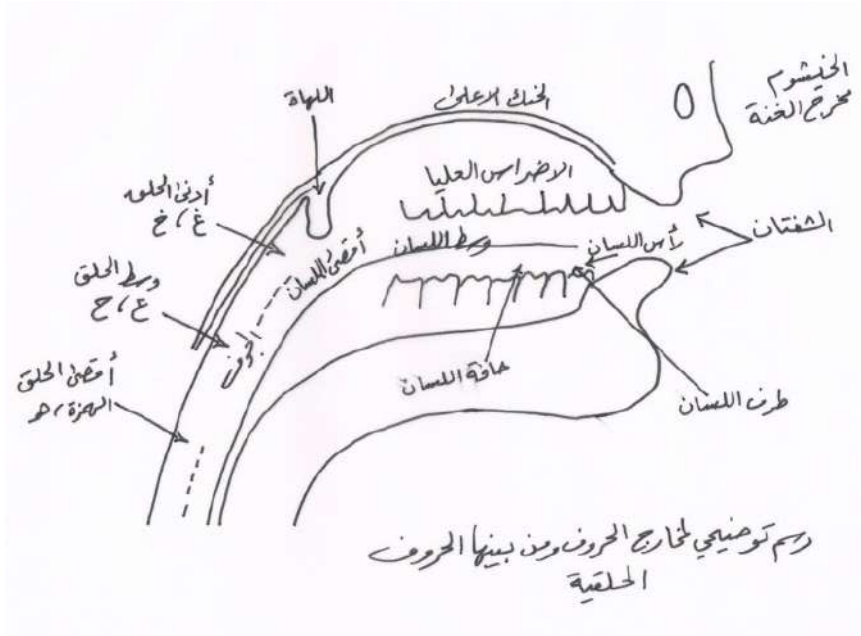 الخيشوم
مخرج الغنة
اللهاة
الحنك الاعلى
الاضراس العليا
أدنى الحلق
غ ، خ
أقصى اللسان
وسط اللسان
رأس اللسان
الشفتان
وسط الحلق
ع ، ح
الجوف
أقصى الحلق
الهمزة ، هـ
حافة اللسان
طرف اللسان
رسم توضيحي لمخارج الحروف ومن بينها الحروف
الحلقية